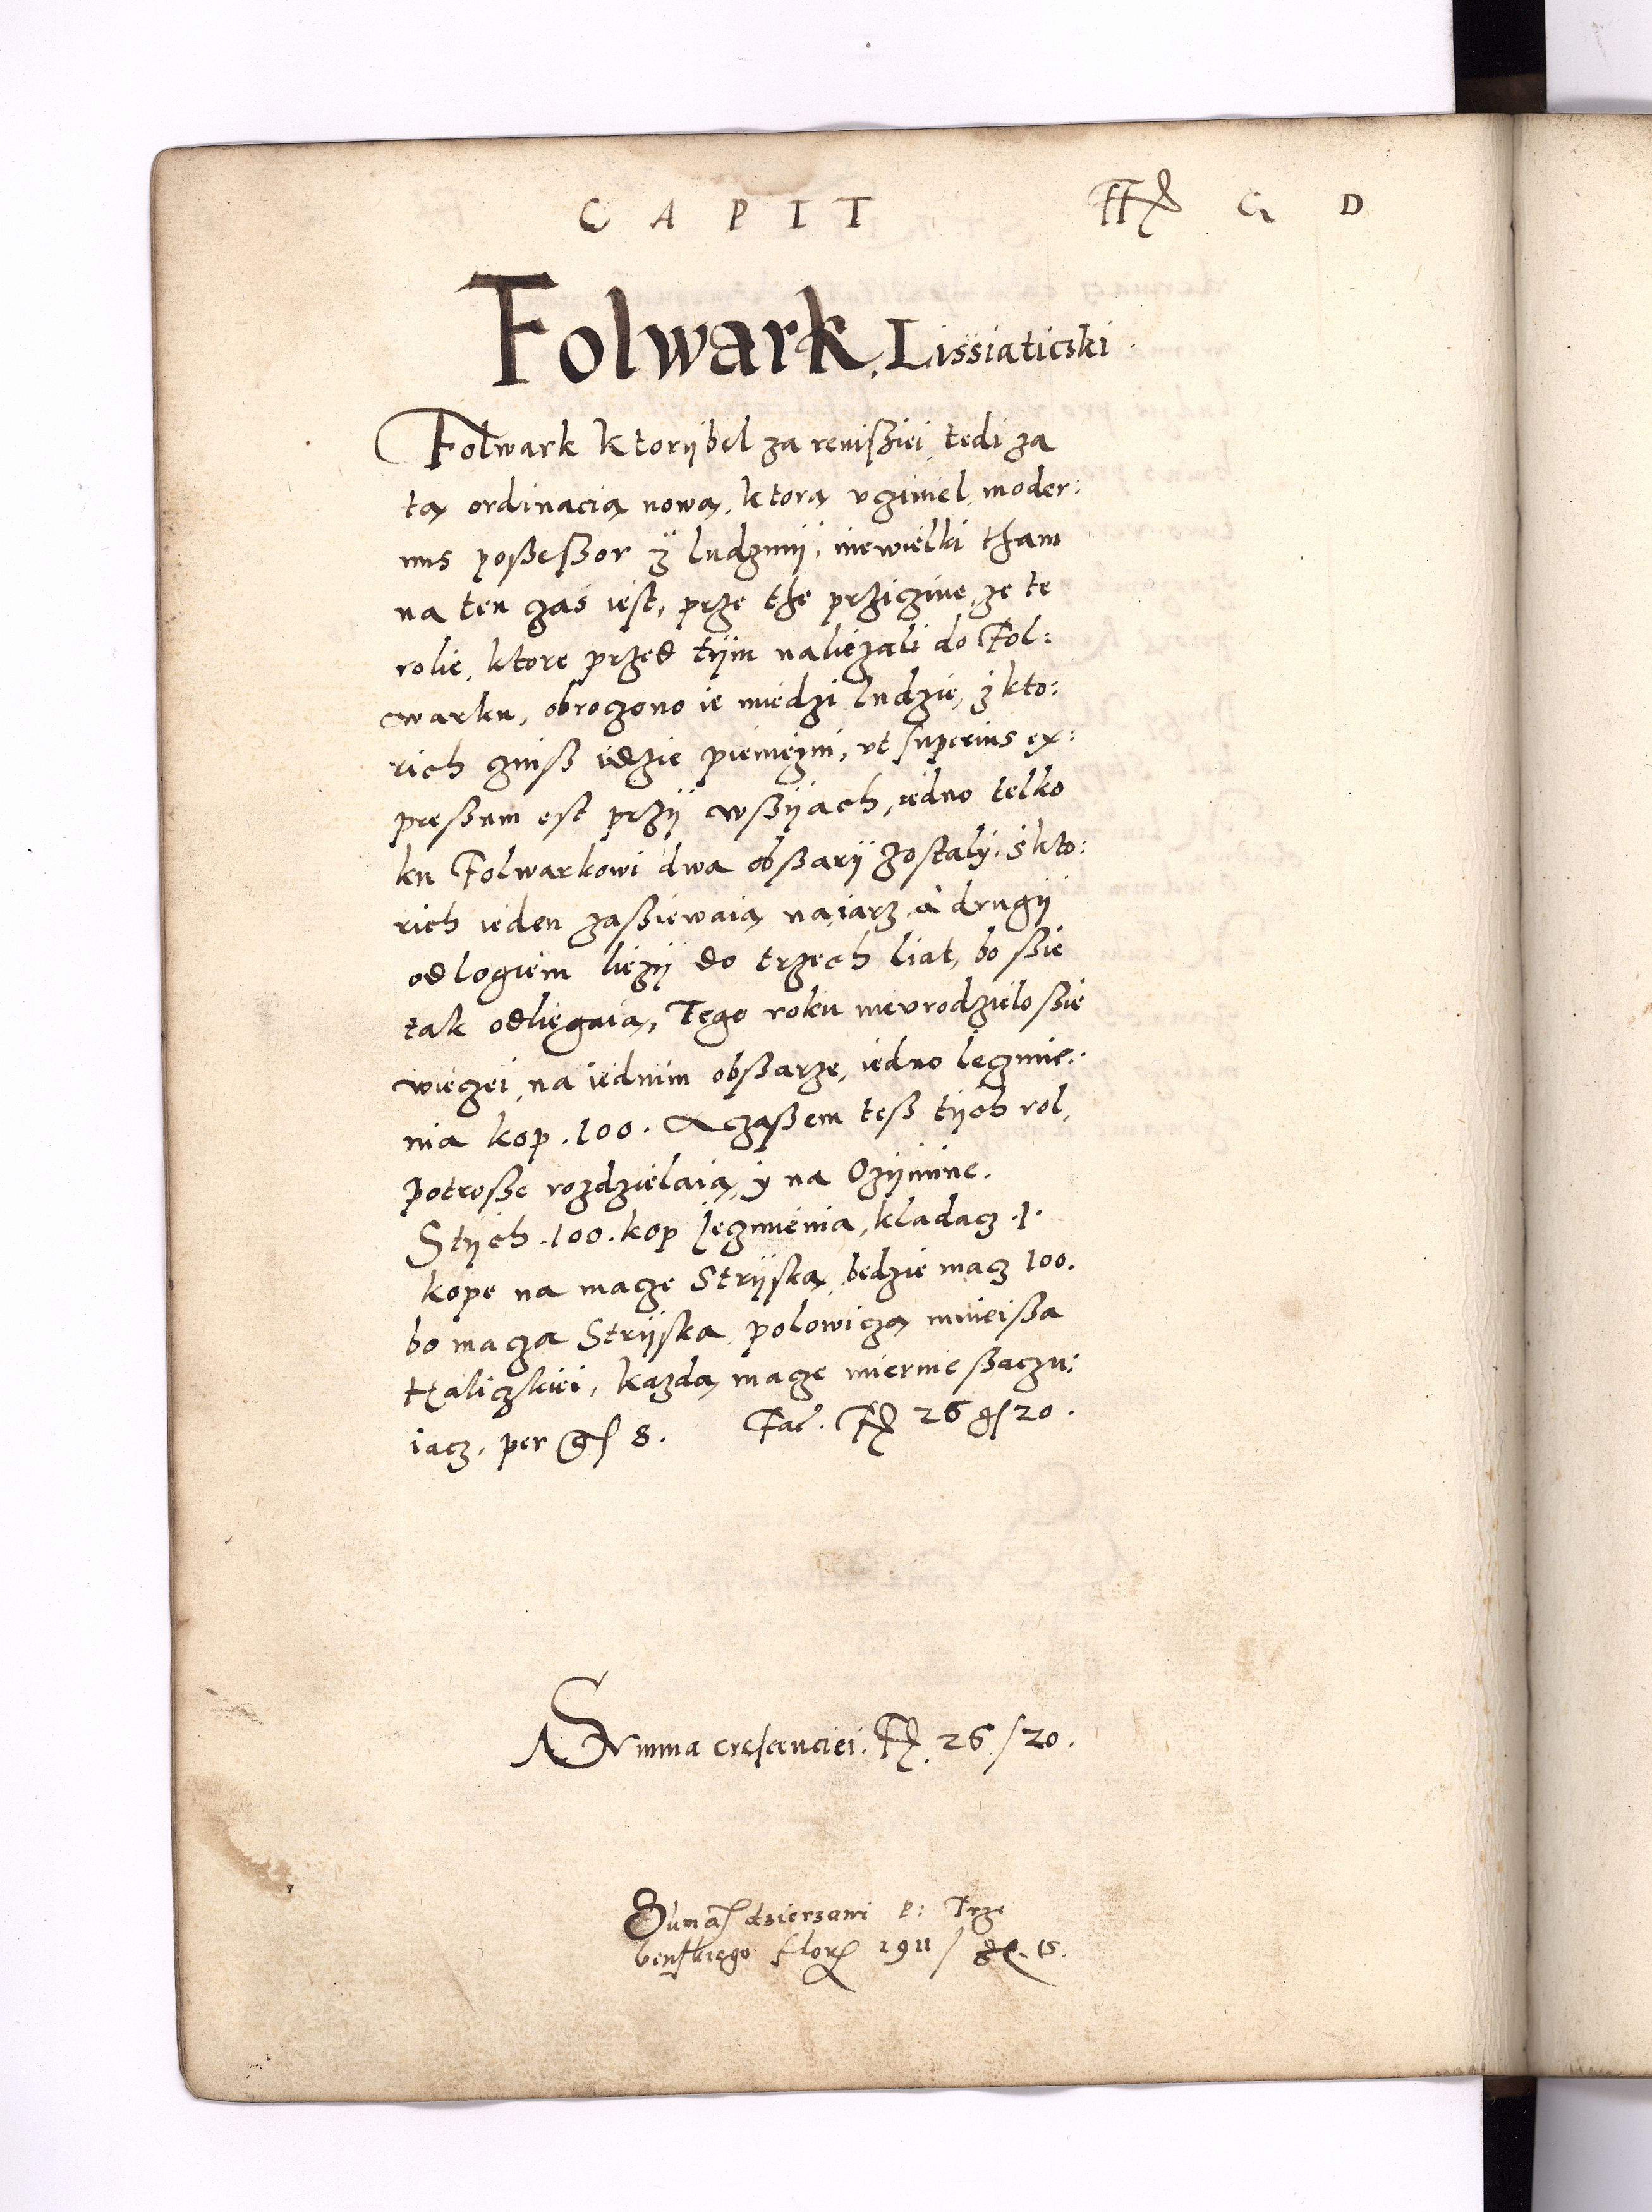 C A P I T Fl G D
Folwark Lissiaticski
Folwark ktorÿ bel za reuisziei tedi za
tą ordinacią nową, ktorą vcziniel moder:
nus poßeßor z ludzmÿ, niewielki tham
na ten czas iest, prze the prziczine, ze te
rolie, ktore przed tÿm naliezali do Fol:
warku, obroczono ie miedzi ludzie, z kto:
rich czinß idzie pieniezni, vt superius ex:
preßum est przÿ wßÿach, iedno telko
ku Folwarkowi dwa obßarÿ zostalÿ, s kto:
rich ieden zaßiewaią na iarz, à drugÿ
odlogiem liezÿ do trzech liat, bo ßie
tak odliegaią, Tego roku nievrodzielo ßie
wieczei, na iednim obßarze, iedno Ieczmie:
nia kop .100. A czaßem teß tÿch rol,
potroße rozdzielaią, y na Ozÿmine.
S tÿch .100. kop Ieczmienia, kladacz .1.
kope na macze Strÿską, bedzie macz 100.
bo macza Strÿska, polowiczą mnieißa
Haliczkiei, kazdą macze miernie ßaczu:
iacz, per gſ 8. Fac. Fl 26 gſ 20.
Summa crescanciei. Fl. 26 / 20.
Suma dzierzawi P: Trze
benskiego flor 1911 / gr. 15.